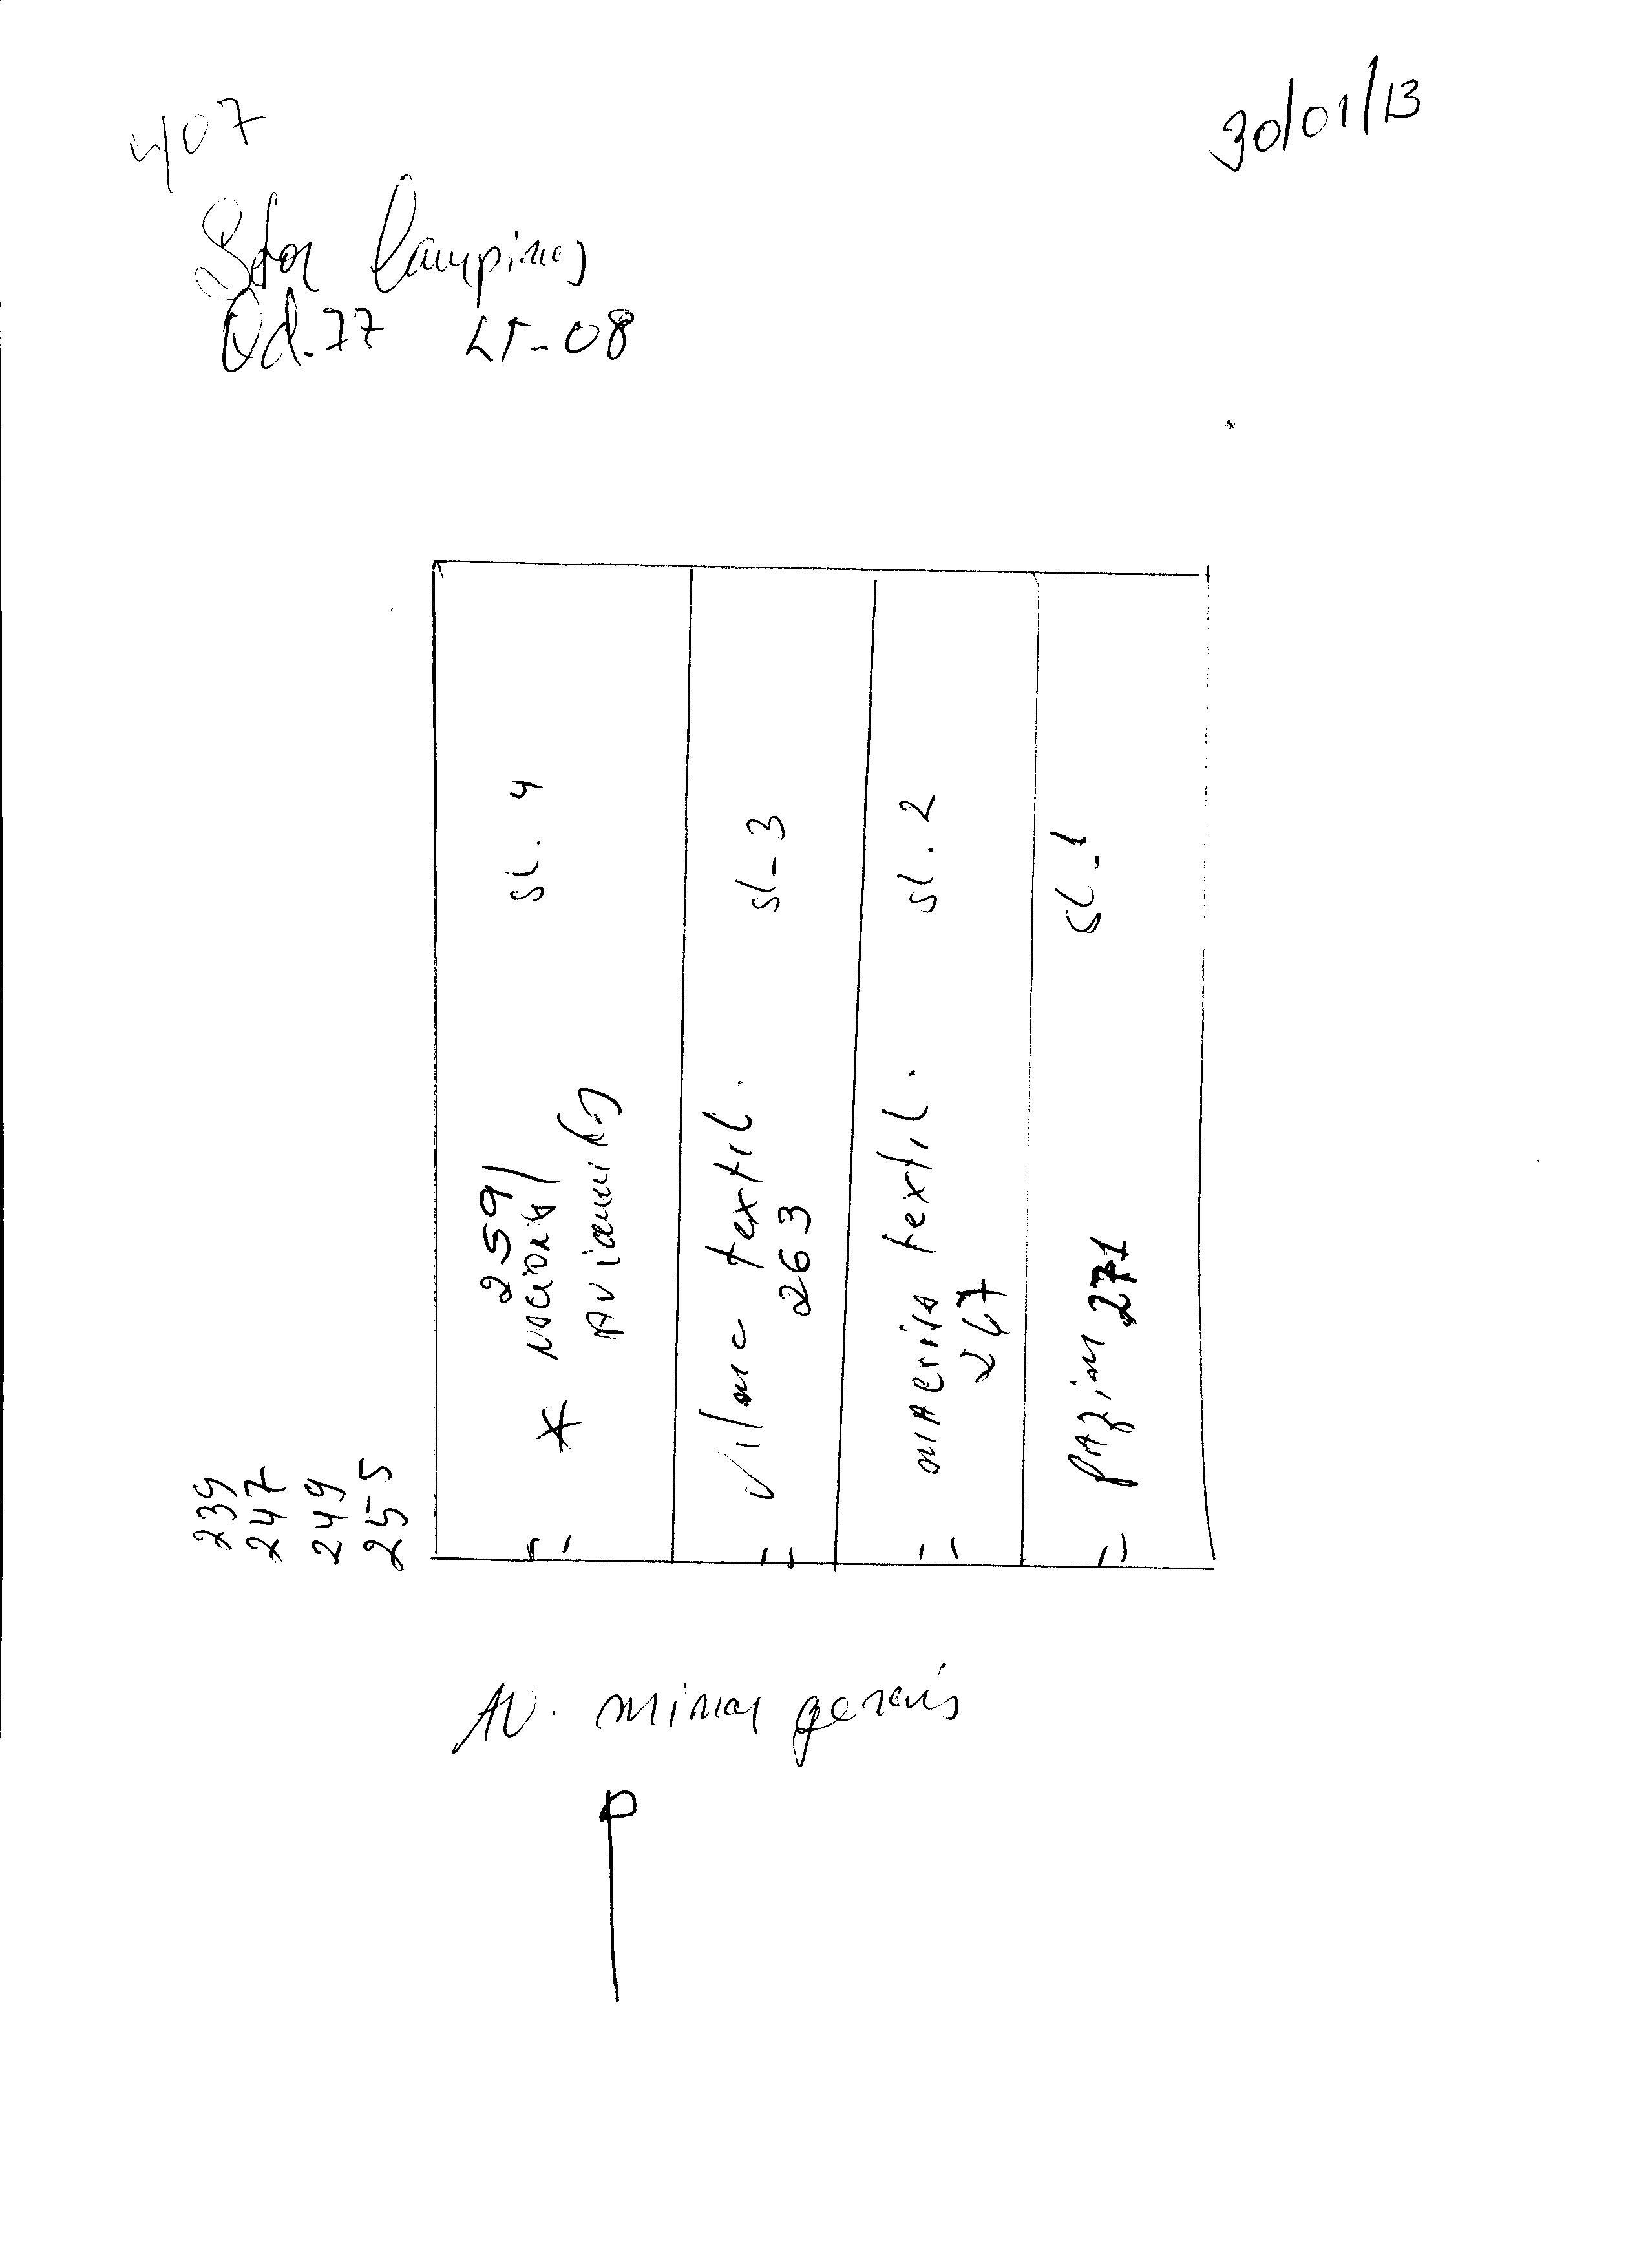 407
30/01/13
Setor Campinas
Qd-77 LT-08
sl. 4
259
Nacional
Aviamentos
*
sl-3
Vilma textil.
263
sl. 2
textil.
267
sl-1
271
239
247
249
255
Av. minas gerais